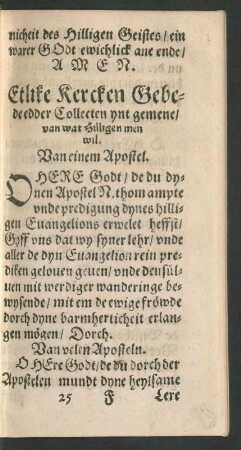 nicheit des Hilligen Geistes / ein
warer GOdt ewichlick ane ende /
A M E N.
Etlike Kercken Gebe-
de edder Collecten ynt gemene /
van wat Hilligen men
wil.
Van einem Apostel.
O HERE Godt / de du dy-
nen Apostel N. thom ampte
vnde predigung dynes hilli-
gen Euangelions erwelet heffst /
Gyff vns dat wy syner lehr / vnde
aller de dyn Euangelion rein pre-
diken gelouen geuen / vnde densül-
uen mit werdiger wanderinge be-
wysende / mit em de ewige fröwde
dorch dyne barmherticheit erlan-
gen mögen / Dorch.
Van velen Aposteln.
O HEre Godt / de du dorch der
Apostelen mundt dyne heylsame
25 F Lere